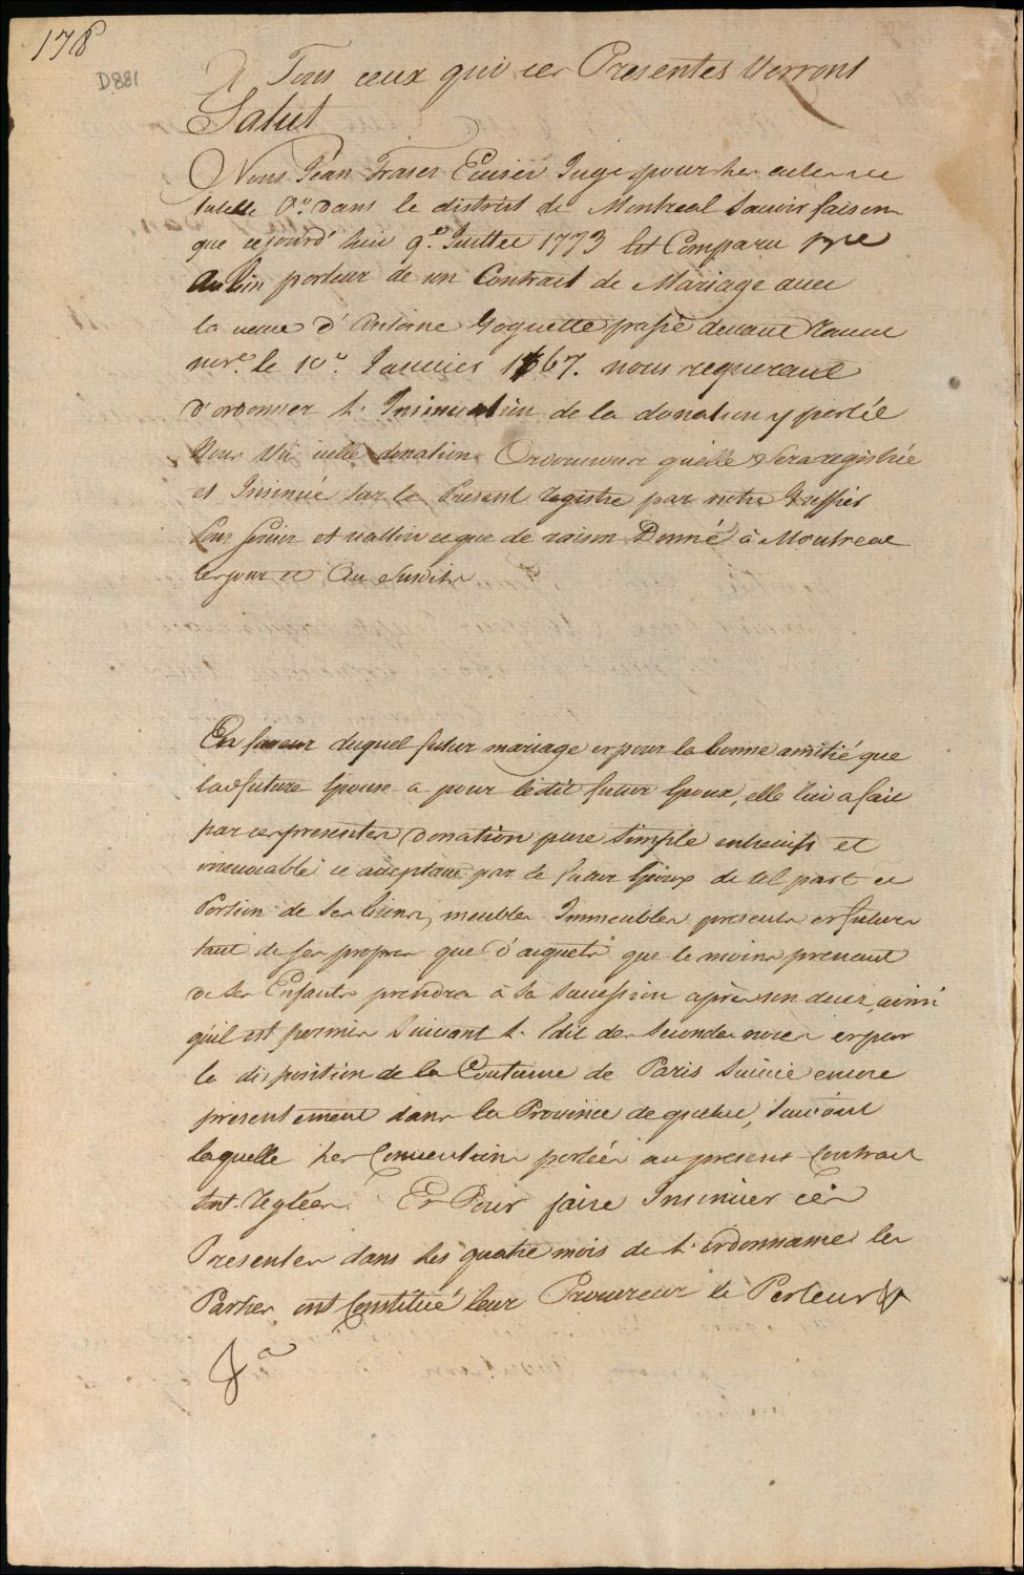 178
D881
A Tous ceux qui ces Presentes Verront
Salut
Nous Jean Fraser Ecuier Juge pour les actes de
tutelle &a. dans le district de Montreal Savoir faisons
que cejourd'huie 9e. Juillet 1773 Est Comparu
Aubin porteur de un Contrast de Mariage avec
la veuve d'Antoine Goguette passé devant
nore. le 10e. Janvier 1767. nous requerant
d'ordonner l'Insinuation de la donation y portée
Nous Vû icelle donation Ordonnons quelle Sera registrée
et Insinuée sur le Present registre par notre Greffier
Pour servir et valloir ceque de raison Donné à Montreal
les jour et An susdits
En faveur duquel futur mariage et pour la bonne amitié que
lad future Epouse a pour ledit futur Epoux, elle lui a fait
par ces presentes donation pure simple entrevifs et
irrevocable ce acceptant par le futur Epoux de tel part et
Portion de ses biens, meubles Immeubles presents et futurs
tant de ses propres que d'acquets que le moins prenant
de ses Enfants prendra à sa succession après son deces, ainsi
quil est permis Suivant l'Edit des secondes noces et par
la disposition de la Coutume de Paris Suivie encore
presentement dans la Province de quebec, suivant
laquelle les Conventions portées au present Contract
sont Reglées. Et Pour faire Insinuer cés
Presentes dans les quatre mois de l'ordonnance les
Parties ont Constitué leur Procureur le Porteur
&a